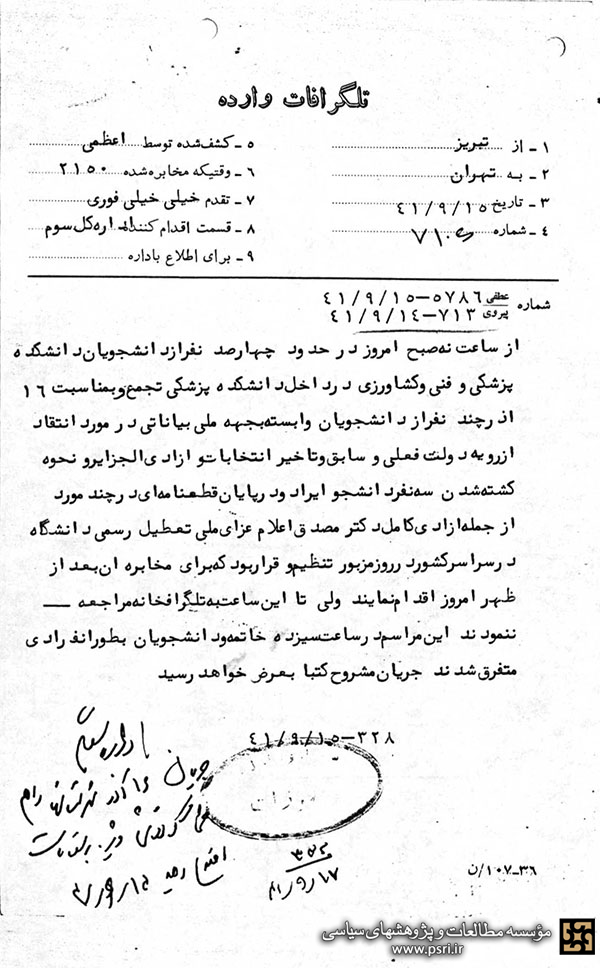 تلگرافات وارده
۱ ـ از تبریز
۲ ـ به تهران
۳ ـ تاریخ ۴۱/۹/۱۵
۴ ـ شماره
۵ ـ کشف‌شده توسط اعظمی
۶ ـ وقتیکه مخابره‌شده ۲۱۵۰
۷ ـ تقدم خیلی خیلی فوری
۸ ـ قسمت اقدام کننده اداره کل سوم
۹ ـ برای اطلاع باداره
شماره عطفی ۵۷۸۶-۴۱/۹/۱۵
پیروی ۷۱۳-۴۱/۹/۱۴
از ساعت نه صبح امروز در حدود چهارصد نفر از دانشجویان دانشکده
پزشکی و فنی و کشاورزی در داخل دانشکده پزشکی تجمع و بمناسبت ۱۶
اذر چند نفر از دانشجویان وابسته بجبهه ملی بیاناتی در مورد انتقاد
از رویه دولت فعلی و سابق و تاخیر انتخابات و ازادی الجزایر و نحوه
کشته شدن سه نفر دانشجو ایراد و در پایان قطعنامه‌ای در چند مورد
از جمله ازادی کامل دکتر مصدق اعلام عزای ملی تعطیل رسمی دانشگاه
در سراسر کشور در روز مزبور تنظیم و قرار بود که برای مخابره ان بعد از
ظهر امروز اقدام نمایند ولی تا این ساعت به تلگرافخانه مراجعه —
ننمودند این مراسم در ساعت سیزده خاتمه و دانشجویان بطور انفرادی
متفرق شدند جریان مشروح کتبا بعرض خواهد رسید
۳۲۸-۴۱/۹/۱۵
جریان ۱۶ آذر
۳۶-۱۰۷/ن
مؤسسه مطالعات و پژوهشهای سیاسی
www.psri.ir